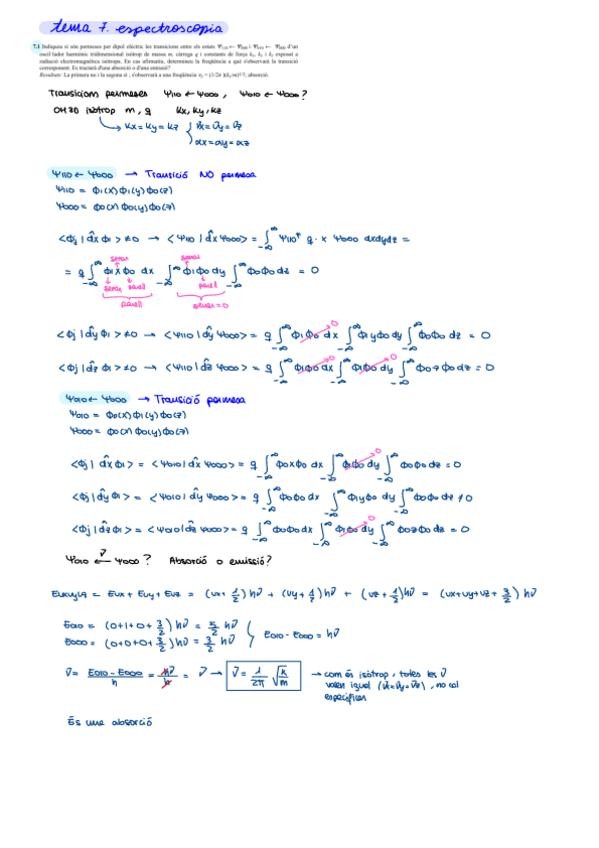 tema 7. espectroscopia
7.1 Indiqueu si són permeses per dipol elèctric les transicions entre els estats Ψ₁₁₀ ← Ψ₀₀₀ i Ψ₀₁₀ ← Ψ₀₀₀ d'un
oscil·lador harmònic tridimensional isòtrop de massa m, càrrega q i constants de força kₓ, kᵧ i k_z exposat a
radiació electromagnètica isòtropa. En cas afirmatiu, determineu la freqüència a què s'observarà la transició
corresponent. Es tractarà d'una absorció o d'una emissió?
Resultats: La primera no i la segona sí; s'observarà a una freqüència
absorció.
Transicions permeses Ψ110 ← Ψ000 , Ψ010 ← Ψ000 ?
OH3D isòtrop m, q kx, ky, kz
↳ kx = ky = kz { ν̄x = ν̄y = ν̄z
αx = αy = αz
Ψ110 ← Ψ000 → Transició NO permesa
Ψ110 = ϕ1(x) ϕ1(y) ϕ0(z)
Ψ000 = ϕ0(x) ϕ0(y) ϕ0(z)
<ϕj | d̂x ϕi> ≠ 0 → <Ψ110 | d̂x Ψ000> = ∫_{-∞}^{∞} Ψ110* q · x Ψ000 dxdydz =
senar senar
= q ∫_{-∞}^{∞} ϕ1 x ϕ0 dx ∫_{-∞}^{∞} ϕ1 ϕ0 dy ∫_{-∞}^{∞} ϕ0 ϕ0 dz = 0
senar parell parell
parell senar = 0
<ϕj | d̂y ϕi> ≠ 0 → <Ψ110 | d̂y Ψ000> = q ∫_{-∞}^{∞} ϕ1 ϕ0 dx → 0 ∫_{-∞}^{∞} ϕ1 y ϕ0 dy ∫_{-∞}^{∞} ϕ0 ϕ0 dz = 0
<ϕj | d̂z ϕi> ≠ 0 → <Ψ110 | d̂z Ψ000> = q ∫_{-∞}^{∞} ϕ1 ϕ0 dx → 0 ∫_{-∞}^{∞} ϕ1 ϕ0 dy → 0 ∫_{-∞}^{∞} ϕ0 z ϕ0 dz = 0
Ψ010 ← Ψ000 → Transició permesa
Ψ010 = ϕ0(x) ϕ1(y) ϕ0(z)
Ψ000 = ϕ0(x) ϕ0(y) ϕ0(z)
<ϕj | d̂x ϕi> = <Ψ010 | d̂x Ψ000> = q ∫_{-∞}^{∞} ϕ0 x ϕ0 dx ∫_{-∞}^{∞} ϕ1 ϕ0 dy → 0 ∫_{-∞}^{∞} ϕ0 ϕ0 dz = 0
<ϕj | d̂y ϕi> = <Ψ010 | d̂y Ψ000> = q ∫_{-∞}^{∞} ϕ0 ϕ0 dx ∫_{-∞}^{∞} ϕ1 y ϕ0 dy ∫_{-∞}^{∞} ϕ0 ϕ0 dz ≠ 0
<ϕj | d̂z ϕi> = <Ψ010 | d̂z Ψ000> = q ∫_{-∞}^{∞} ϕ0 ϕ0 dx ∫_{-∞}^{∞} ϕ1 ϕ0 dy → 0 ∫_{-∞}^{∞} ϕ0 z ϕ0 dz = 0
Ψ010 ←ν̄ Ψ000 ? Absorció o emissió?
Evxvyvz = Evx + Evy + Evz = (vx + 1/2) hν̄ + (vy + 1/2) hν̄ + (vz + 1/2) hν̄ = (vx + vy + vz + 3/2) hν̄
E010 = (0+1+0 + 3/2) hν̄ = 5/2 hν̄
E000 = (0+0+0 + 3/2) hν̄ = 3/2 hν̄ } E010 - E000 = hν̄
ν̄ = E010 - E000 / h = hν̄ / h = ν̄ → ν̄ = 1/2π √k/m → com és isòtrop, totes les ν̄
valen igual (ν̄x = ν̄y = ν̄z), no cal
especificar
És una absorció